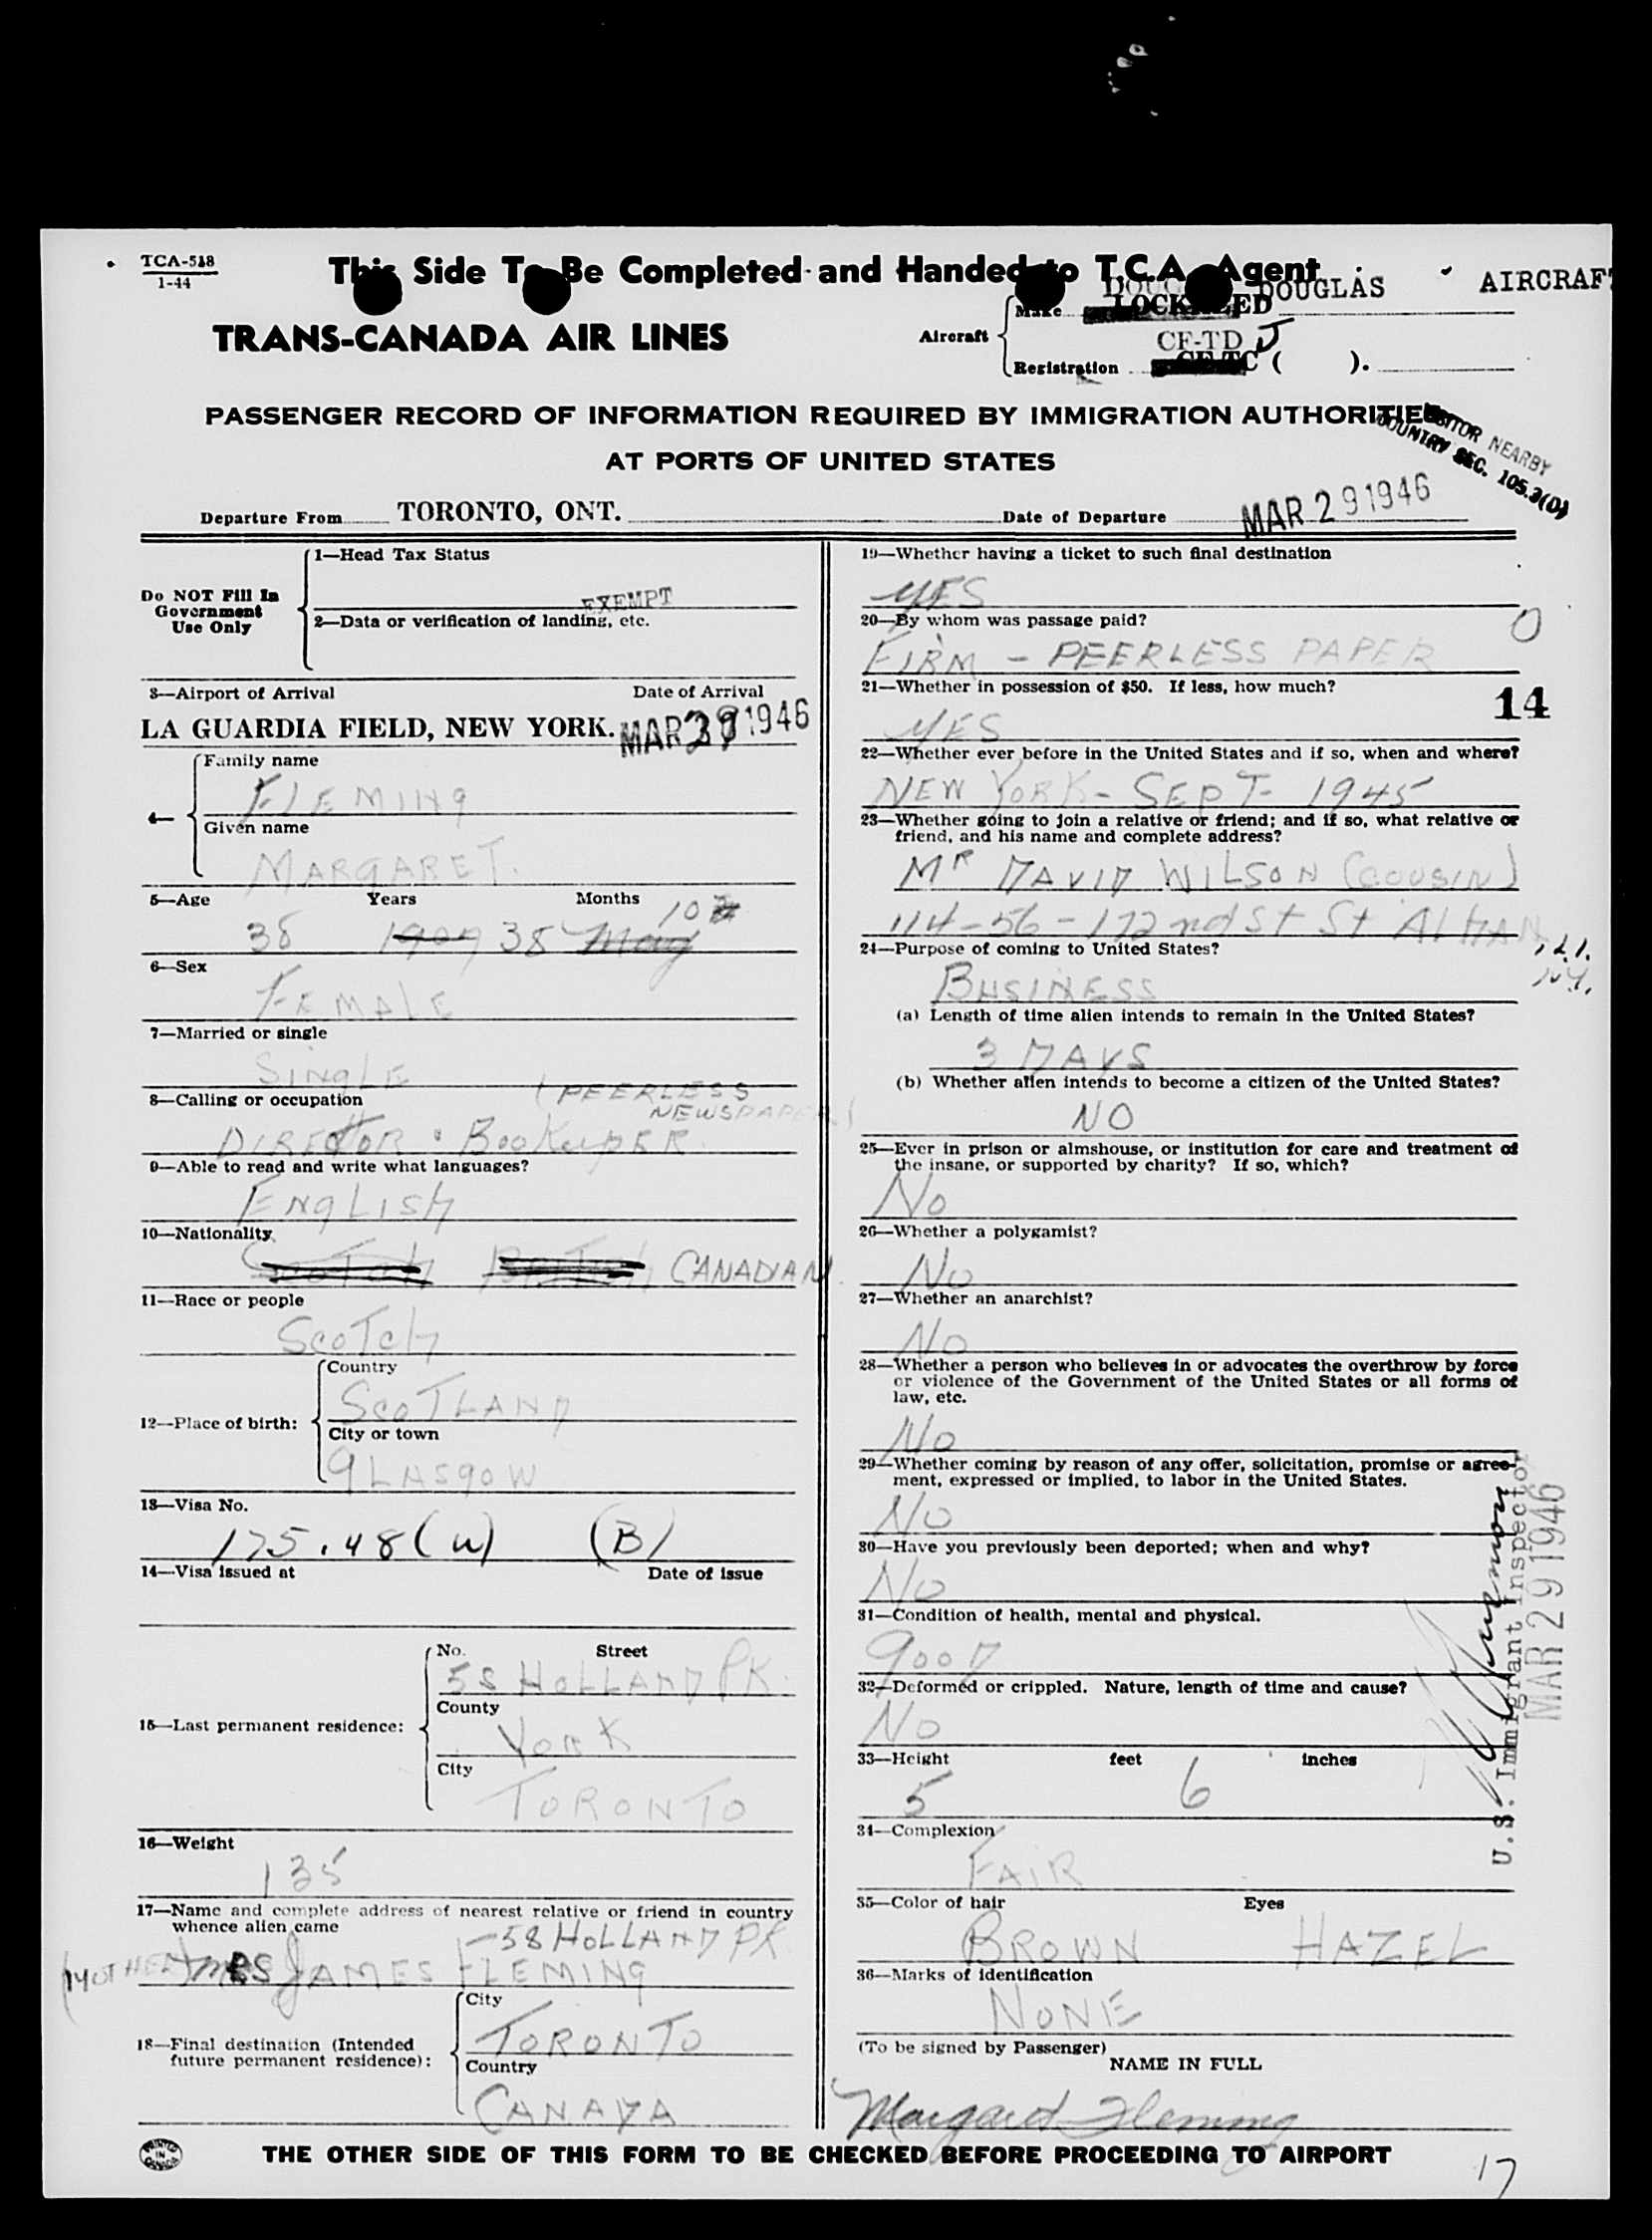 TCA-518
1-44
This Side To Be Completed and Handed to T.C.A. Agent
DOUGLAS AIRCRAFT
TRANS-CANADA AIR LINES
Aircraft
Make LOCKHEED
CF-TD J
Registration CF-TC ( ).
PASSENGER RECORD OF INFORMATION REQUIRED BY IMMIGRATION AUTHORITIES
AT PORTS OF UNITED STATES
VISITOR NEARBY
COUNTRY SEC. 105.3(D)
Departure From TORONTO, ONT. Date of Departure MAR 29 1946
Do NOT Fill In
Government
Use Only
1—Head Tax Status
EXEMPT
2—Data or verification of landing, etc.
3—Airport of Arrival Date of Arrival
LA GUARDIA FIELD, NEW YORK. MAR 29 1946
4—
Family name
FLEMING
Given name
MARGARET.
5—Age Years Months
38 1907 38 May 10
6—Sex
FEMALE
7—Married or single
SINGLE
8—Calling or occupation
(PEERLESS
NEWSPAPER)
DIRECTOR • BOOKEEPER
9—Able to read and write what languages?
ENGLISH
10—Nationality
Scotch British CANADIAN.
11—Race or people
SCOTCH
12—Place of birth:
Country
SCOTLAND
City or town
GLASGOW
13—Visa No.
175.48 (W) (B)
14—Visa issued at Date of issue
15—Last permanent residence:
No. Street
58 HOLLAND PK.
County
YORK
City
TORONTO
16—Weight
135
17—Name and complete address of nearest relative or friend in country
whence alien came
—58 HOLLAND PK
(MOTHER) MRS JAMES FLEMING
18—Final destination (Intended
future permanent residence):
City
TORONTO
Country
CANADA
19—Whether having a ticket to such final destination
YES
20—By whom was passage paid?
0
FIRM - PEERLESS PAPER
21—Whether in possession of $50. If less, how much?
14
YES
22—Whether ever before in the United States and if so, when and where?
NEW YORK - SEPT - 1945
23—Whether going to join a relative or friend; and if so, what relative or
friend, and his name and complete address?
MR DAVID WILSON (COUSIN)
114-56-172nd St St ALHAN
, L.I.
N.Y.
24—Purpose of coming to United States?
BUSINESS
(a) Length of time alien intends to remain in the United States?
3 DAYS
(b) Whether alien intends to become a citizen of the United States?
NO
25—Ever in prison or almshouse, or institution for care and treatment of
the insane, or supported by charity? If so, which?
No
26—Whether a polygamist?
No
27—Whether an anarchist?
No
28—Whether a person who believes in or advocates the overthrow by force
or violence of the Government of the United States or all forms of
law, etc.
No
29—Whether coming by reason of any offer, solicitation, promise or agree-
ment, expressed or implied, to labor in the United States.
No
30—Have you previously been deported; when and why?
No
31—Condition of health, mental and physical.
GOOD
32—Deformed or crippled. Nature, length of time and cause?
No
33—Height feet inches
5 6
34—Complexion
FAIR
35—Color of hair Eyes
BROWN HAZEL
36—Marks of identification
NONE
U.S. Immigrant Inspector
MAR 29 1946
(To be signed by Passenger)
NAME IN FULL
Margaret Fleming
PRINTED
IN
CANADA
THE OTHER SIDE OF THIS FORM TO BE CHECKED BEFORE PROCEEDING TO AIRPORT
17